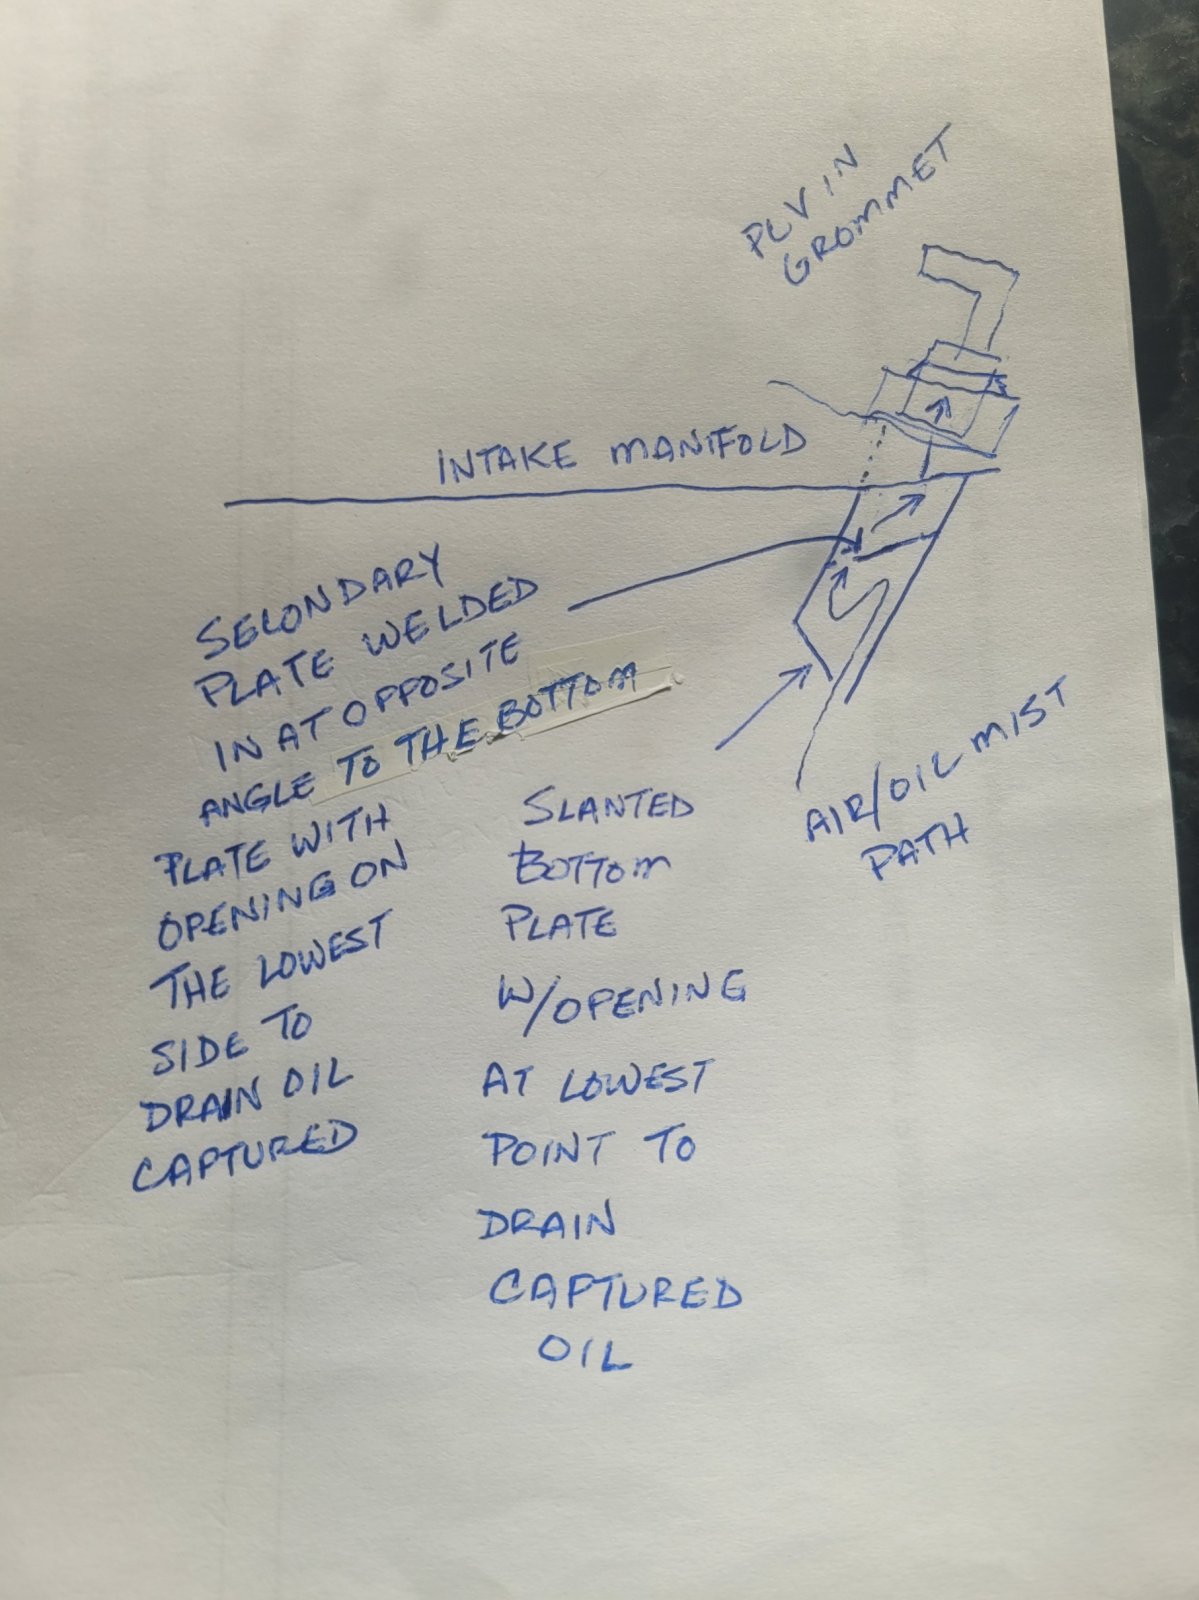 PCV IN
GROMMET
INTAKE MANIFOLD
SECONDARY
PLATE WELDED
IN AT OPPOSITE
ANGLE TO THE BOTTOM
PLATE WITH
OPENING ON
THE LOWEST
SIDE TO
DRAIN OIL
CAPTURED
SLANTED
BOTTOM
PLATE
W/OPENING
AT LOWEST
POINT TO
DRAIN
CAPTURED
OIL
AIR/OIL MIST
PATH